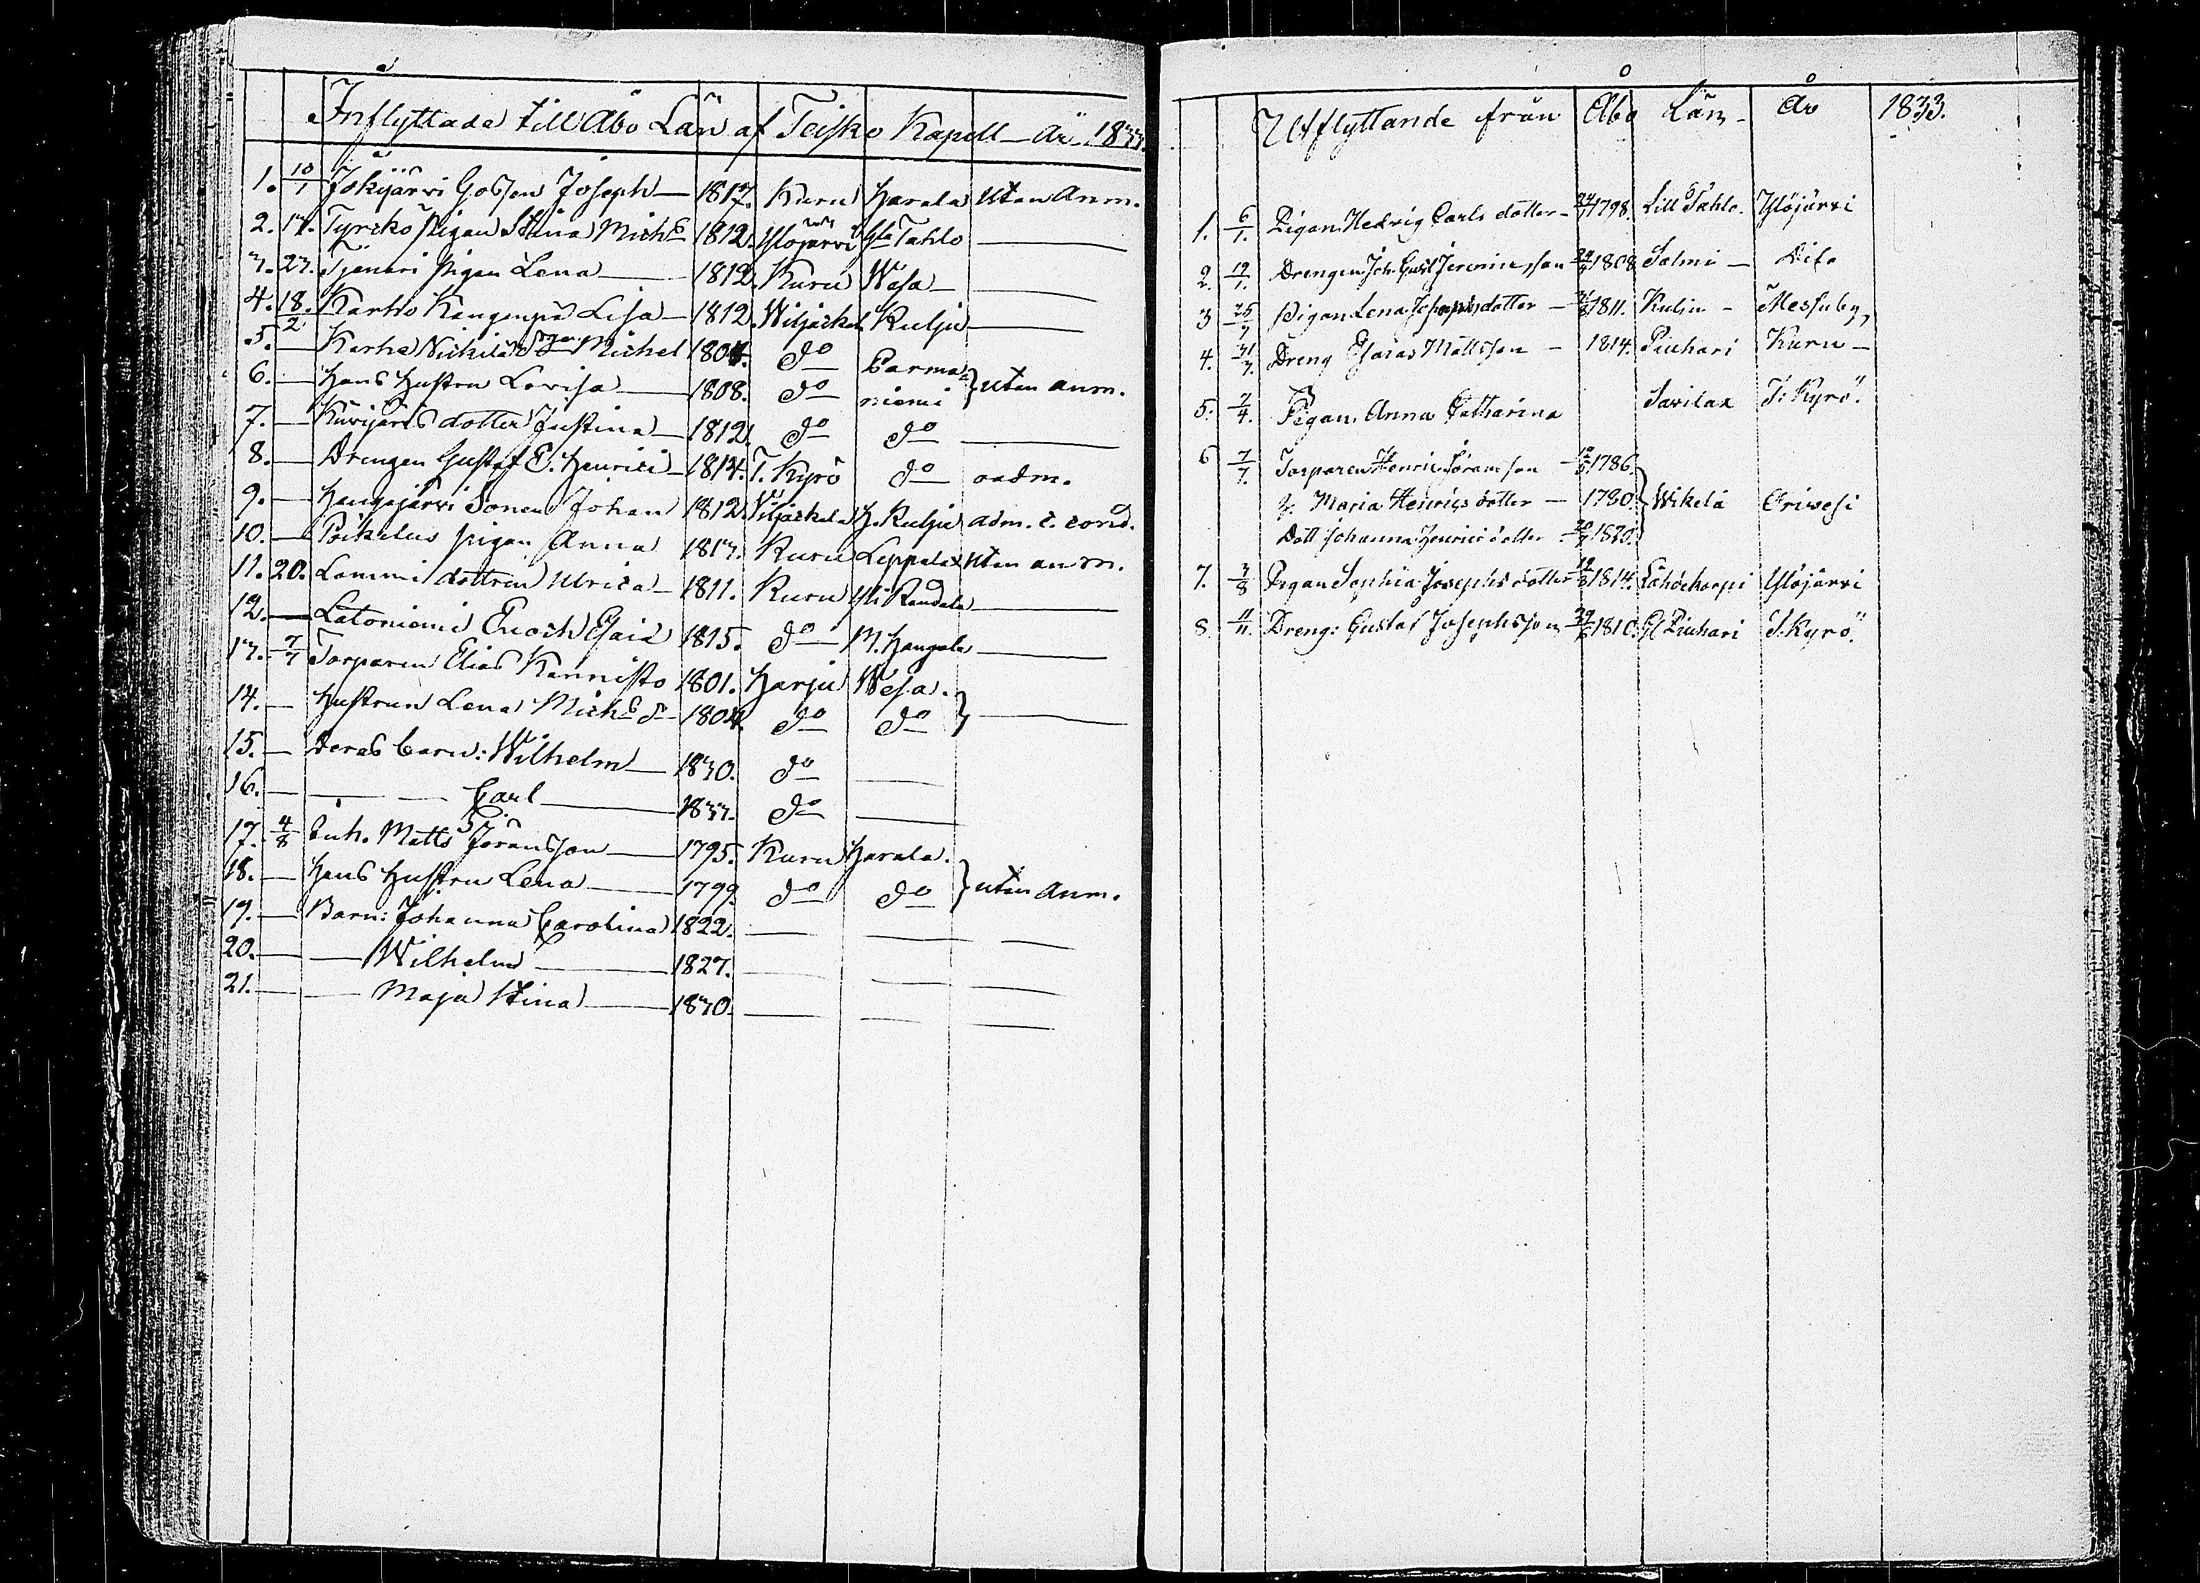 Inflyttade till Åbo Län af Teisko Kapell År 1833.
1. 10/1 Jokijärvi Gossen Joseph — 1817. Kuru Harala Utan Anm.
2. 17. Tyrckö Pigan Stina Mich.s 1812. Ylöjärvi Yli Tahlo —
3. 23. Tjenari pigan Lena — 1812. Kuru Wesa —
4. 18. Karho Kangenpä Lisa — 1812. Wiljackal Kulju —
5. 2 — Karha Nickilä Michel 1804. do Parma
6. — Hans Hustru Lovisa — 1808. do niemi } utan anm.
7. — dotter Justina — 1812. do do —
8. — Drengen Gustaf E. Henrici — 1814. T. Kyrö do oadm.
9. — Hangajärvi Sonen Johan 1812. Viljackala H. Kulju adm. c. cond.
10. — Poikelus pigan Anna 1813. Kuru Leppalax Utan anm.
11. 20. Lammi dottren Ulrica — 1811. Kuru Yli Kandala —
12. — Latoniemi Enoch Esaid 1815. do M. Hangala —
13. 7/7 Torparen Elias Kannisto 1801. Harju Wesa.
14. — Hustrun Lena Mich.s dr 1804. do do } —
15. — Deras barn: Wilhelm — 1830. do —
16. — — — Carl — 1833. do —
17. 4/8 Inh. Matts Jöransson — 1795. Kuru Harala.
18. — Hans Hustru Lena — 1799. do do } utan Anm.
19. — Barn: Johanna Carolina 1822. — — —
20. — — Wilhelm — 1827. — — —
21. — — Maja Stina — 1830. — — —
Utflyttande från Åbo Län — År 1833.
1. 6/1. Pigan Hedrig Carls dotter — 24/1 1798. Lill Tahlo. Ylöjärvi
2. 19/1. Drengen Joh. Gust Jeremiasson 1808 Salmi — Dito
3 25/3 Pigan Lena Josephsdotter — 1811. Kulju — Messuby,
4. 31/3. Dreng Esaias Mattsson — 1814. Piuhari Kuru —
5. 7/4. Pigan Anna Catharina Savilax T: Kyrö.
6 7/7. Torparen Henric Göransson — 1786.
h. Maria Henrics dotter — 1780. } Wikelä Orivesi
Dott Johanna Henrics dotter — 1820.
7. 3/8 Pigan Sophia Josephs dotter 1814. Lähdekorpi Ylöjärvi
8 4/11. Dreng: Gustaf Josephsson 1810. G. Piuhari T. Kyrö.